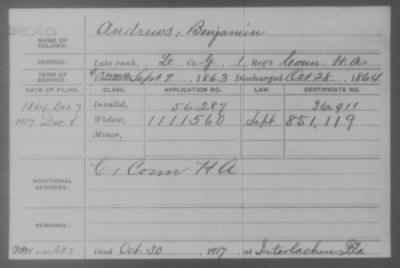 DEAD
NAME OF SOLDIER: Andrews, Benjamin
SERVICE: Late rank, Lt Co. G, 1 Reg't Conn. H.A.
TERM OF SERVICE: Enlisted Sept 7, 1863 Discharged Oct 28, 1864
DATE OF FILING. CLASS. APPLICATION NO. LAW. CERTIFICATE NO.
1864, Dec 7 Invalid, 56.287 36.911
1917, Dec 8 Widow, 1111560 Sept 851,119
Minor,
ADDITIONAL SERVICES: C, 1 Conn H A
REMARKS:
Died Oct. 30, 1917, at Interlachen, Fla